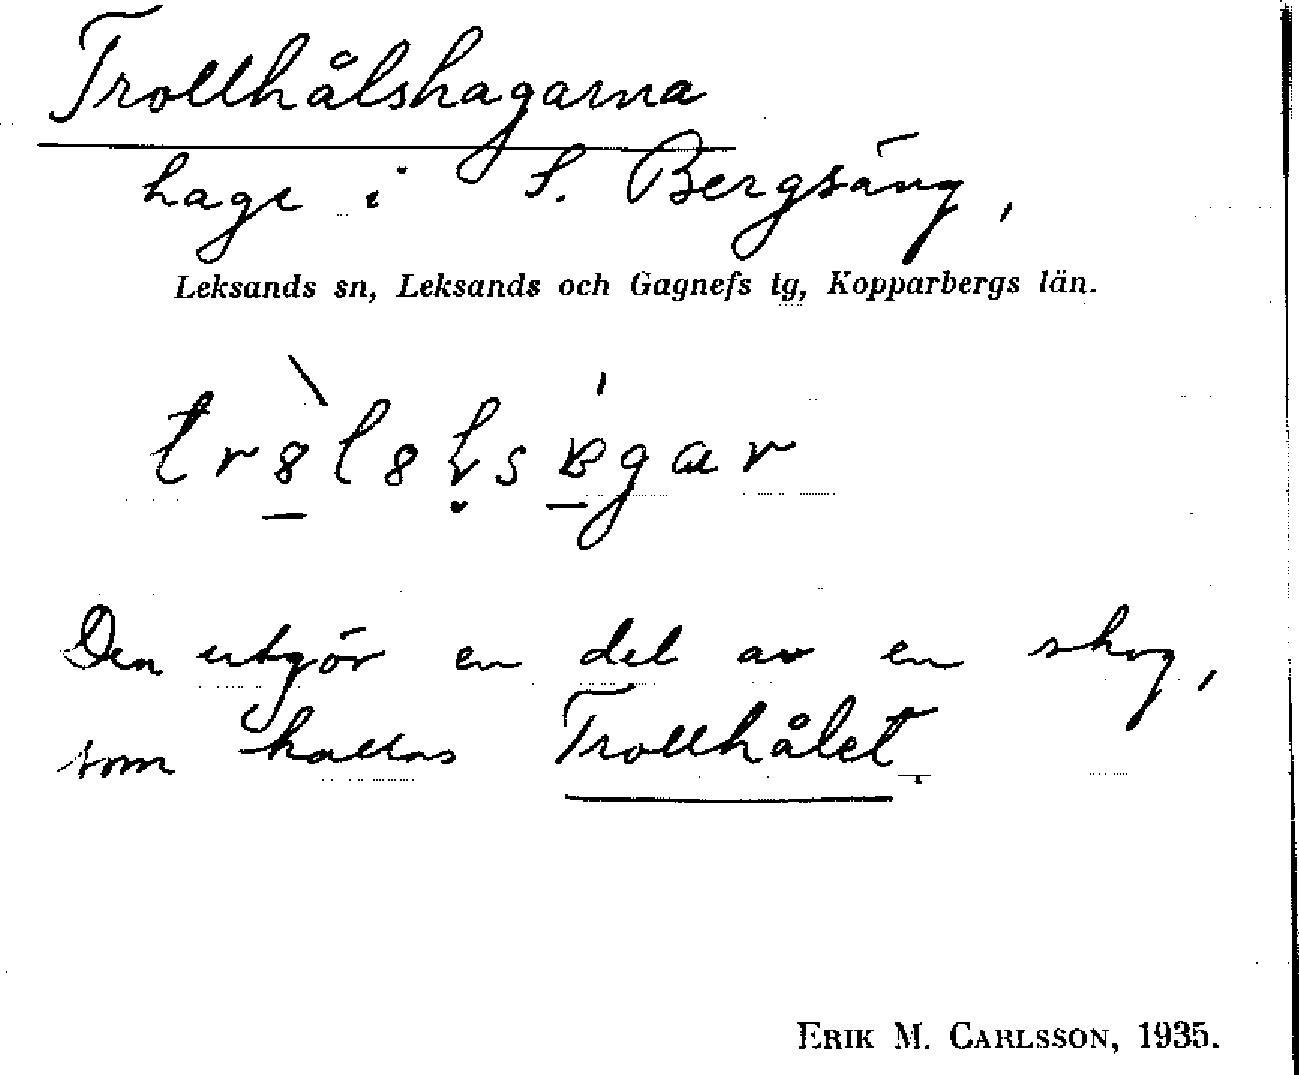 Trollhålshagarna
hage i S. Bergsäng,
Leksands sn, Leksands och Gagnefs tg, Kopparbergs län.
Den utgör en del av en skog,
som kallas Trollhålet.
ERIK M. CARLSSON, 1935.